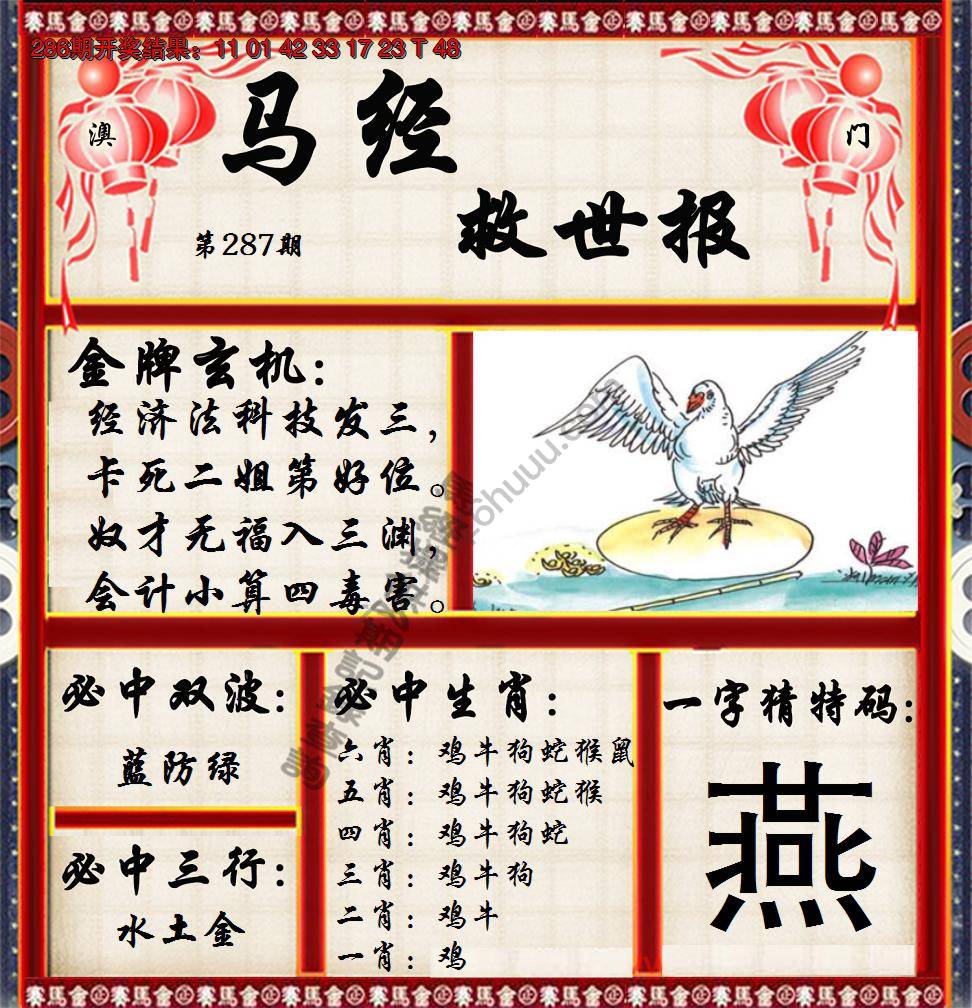 赛馬會
286期开奖结果：11 01 42 33 17 23 T 48
澳
门
马经
救世报
第287期
金牌玄机：
经济法科技发三，
卡死二姐第好位。
奴才无福入三渊，
会计小算四毒害。
必中双波：
蓝防绿
必中三行：
水土金
必中生肖：
六肖：鸡牛狗蛇猴鼠
五肖：鸡牛狗蛇猴
四肖：鸡牛狗蛇
三肖：鸡牛狗
二肖：鸡牛
一肖：鸡
一字猜特码：
燕